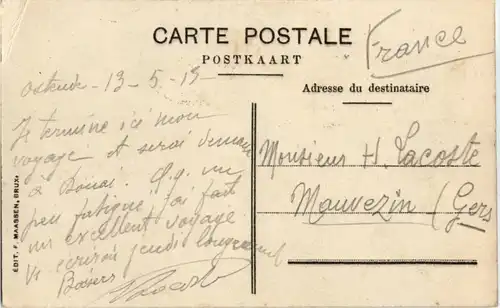 CARTE POSTALE
POSTKAART
France
Adresse du destinataire
Ostende - 13-5-13
Je termine ici mon
voyage et serai demain
à Douai.
peu fatigué j'ai fait
un excellent voyage
Vs écrirai jeudi longuement
Baisers
Lacoste
Monsieur H. Lacoste
Mauvezin (Gers
ÉDIT. F. MAASSEN, BRUX.